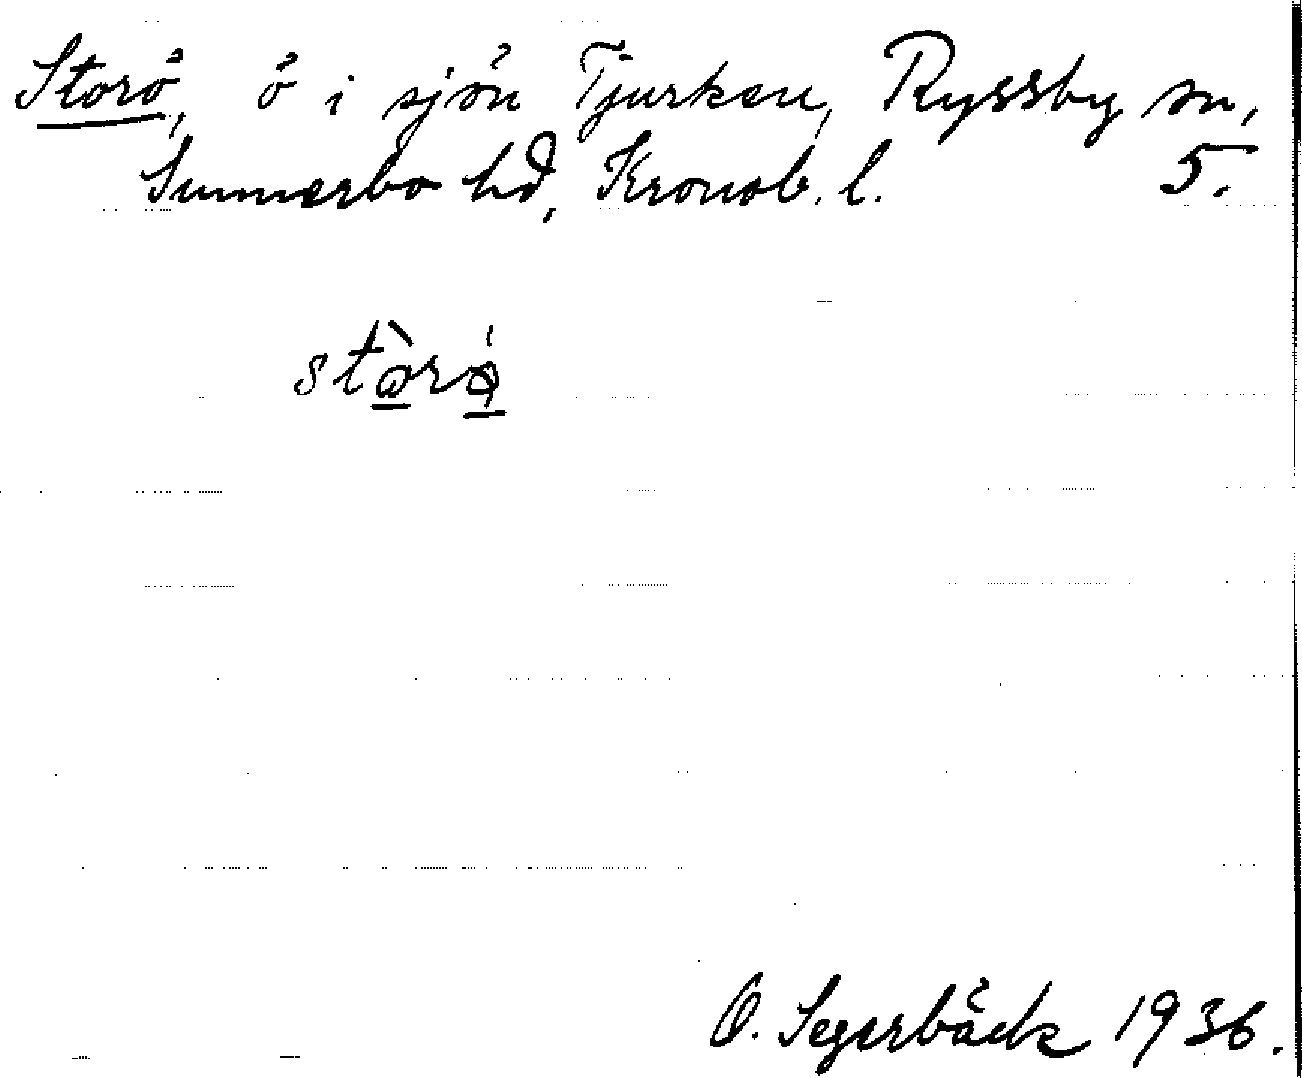 Storö, ö i sjön Tjurken, Ryssby sn,
Sunnerbo hd, Kronob. l. 5.
O. Segerbäck 1936.